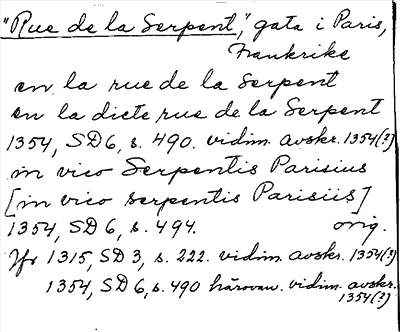 "Rue de la Serpent", gata i Paris,
Frankrike
en la rue de la Serpent
en la dicte rue de la Serpent
1354, SD 6, s. 490. vidim. avskr. 1354(?)
in vico Serpentis Parisius
[in vico serpentis Parisiis]
1354, SD 6, s. 494. orig.
Jfr 1315, SD 3, s. 222. vidim. avskr. 1354(?)
1354, SD 6, s. 490 härovan. vidim. avskr.
1354(?)